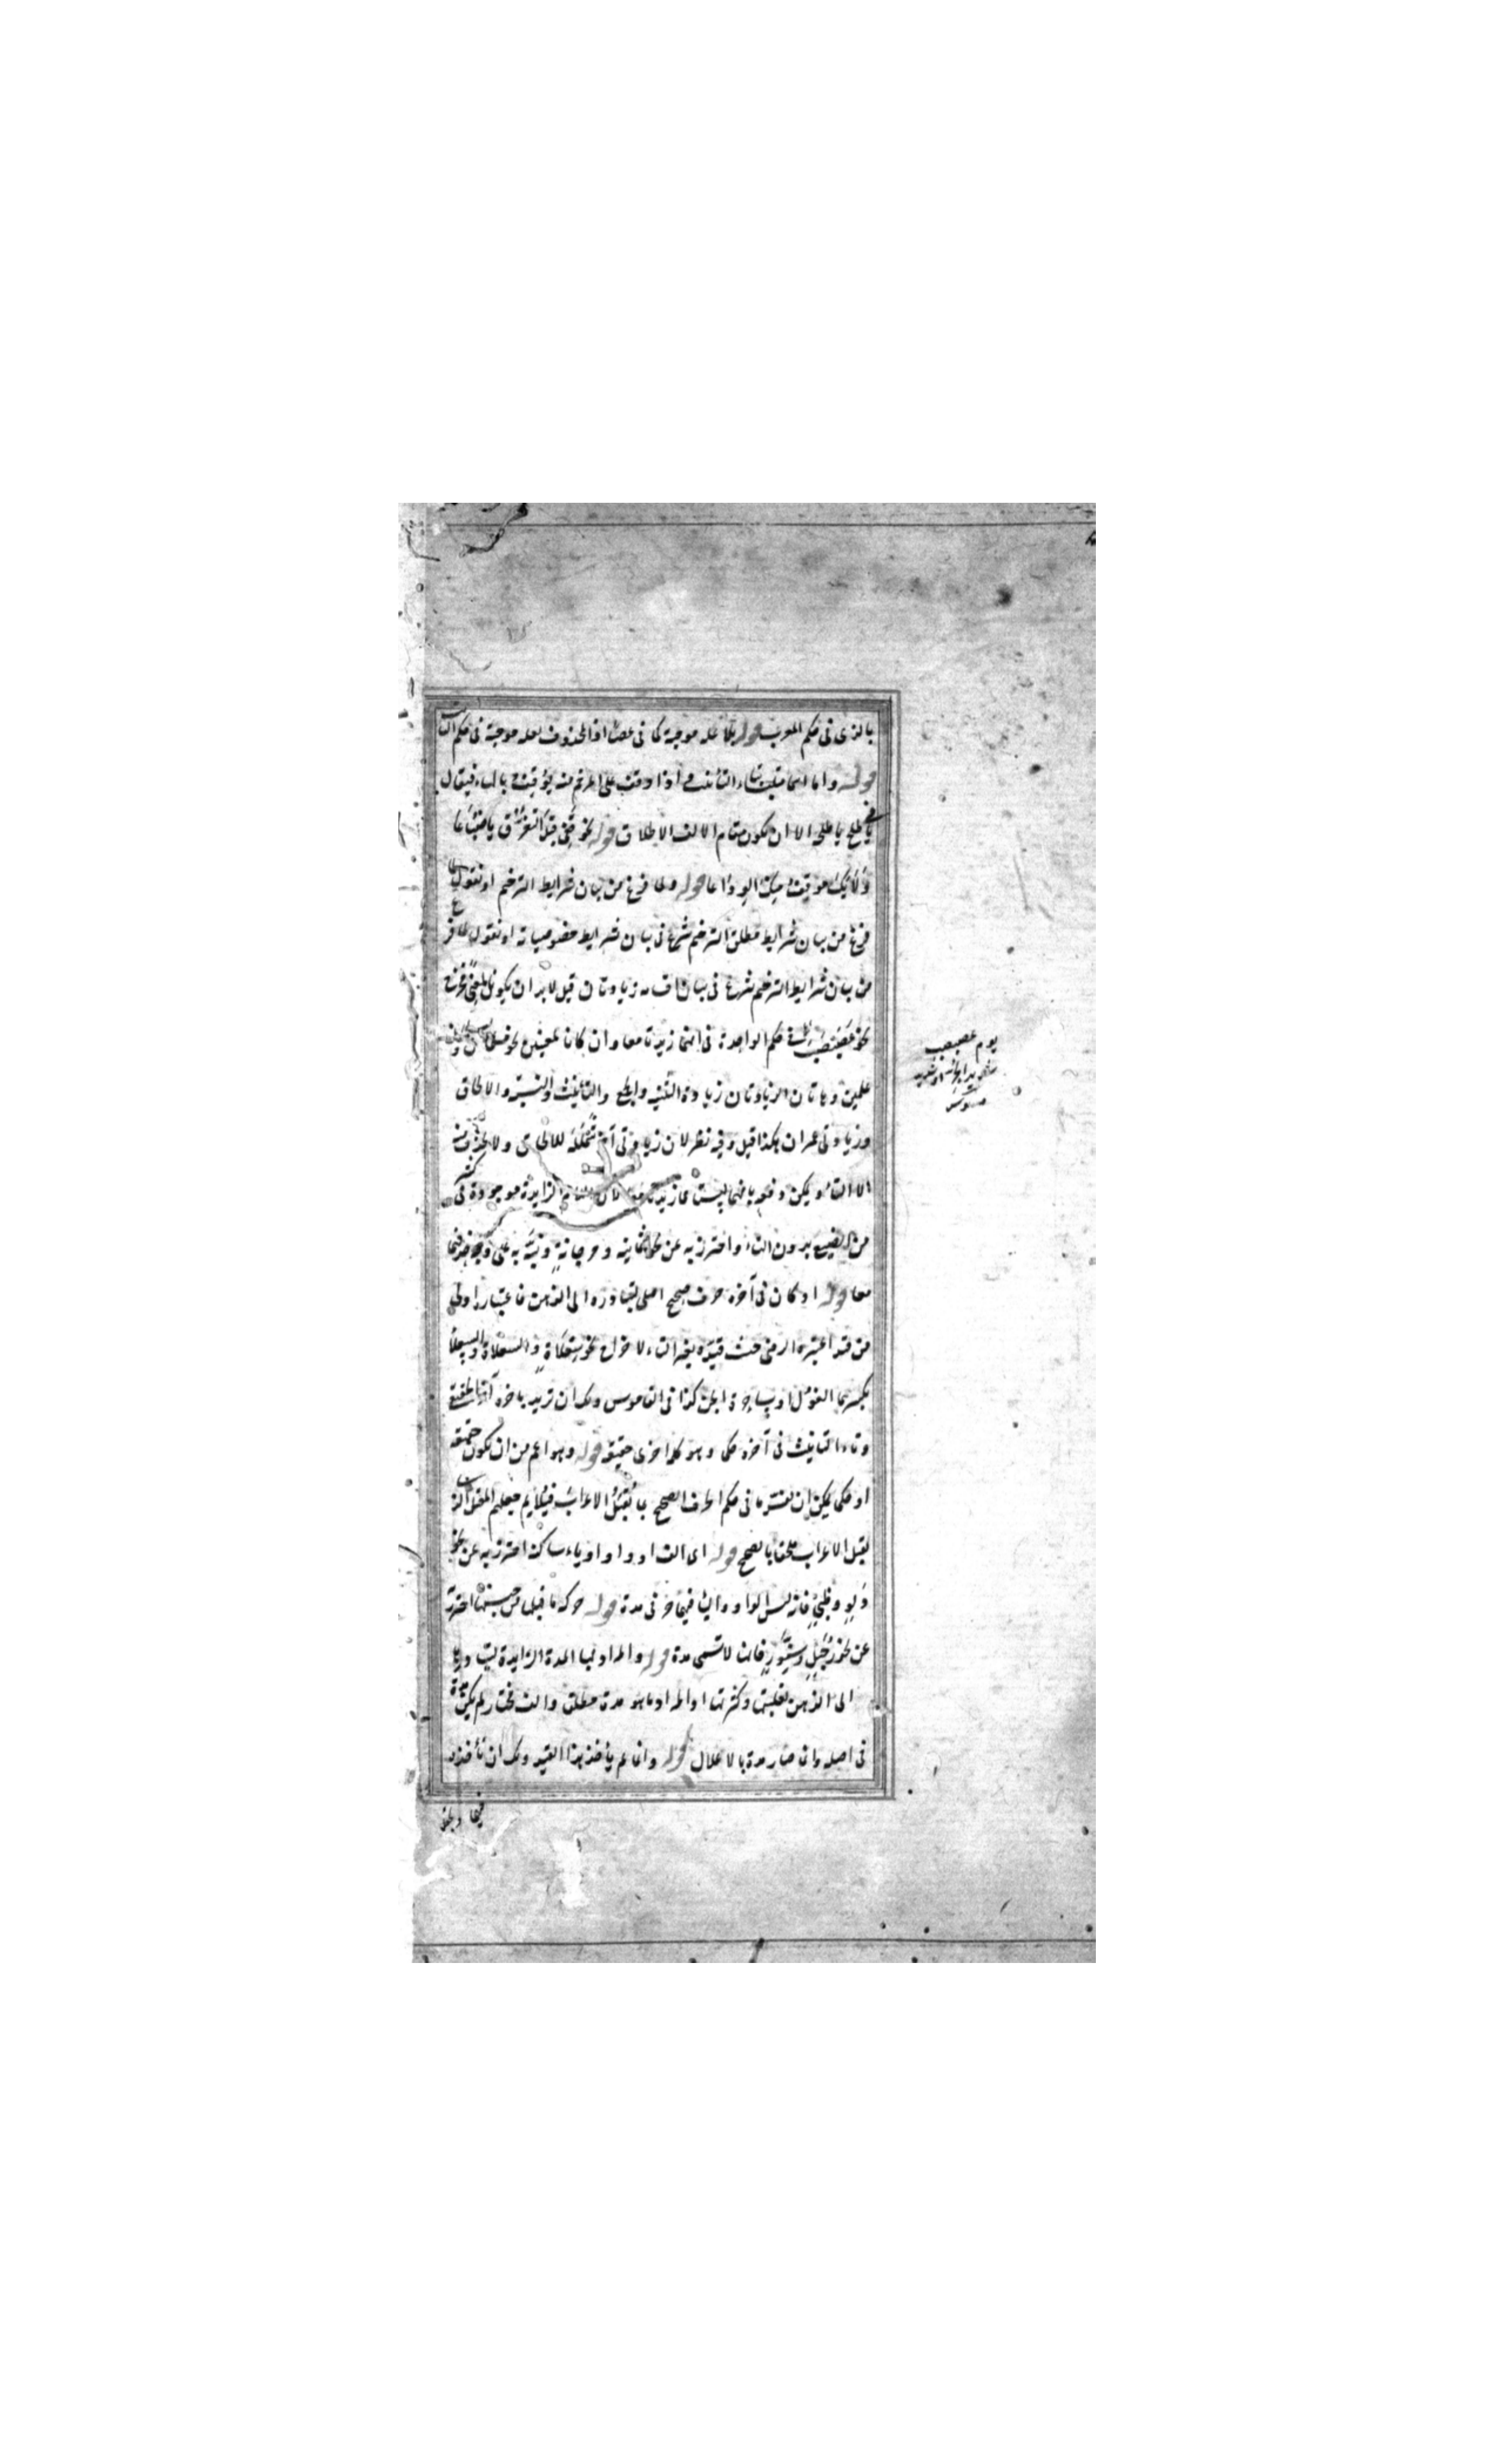 بالذى فى حكم المعرب قوله بلا علة موجبة كما فى عصا اذ المحذوف بعلة موجبة فى حكم الثابت
قوله واما اسما متلبسا بتاء التأنيث اذا وقف على المرخم منه يوقف بالهاء فيقال
يا طلح يا طلحه الا ان يكون مقام الالف الاطلاق قوله نحو قفى قبل التفرق يا ضباعا
ولا يك موقف منك الوداعا قوله ولما فرغ من بيان شرايط الترخيم او نقول لما
فرغ من بيان شرايط مطلق الترخيم شرع فى بيان شرايط خصوصياته او نقول لما فرغ
من بيان شرايط الترخيم شرع فى بيان اقسامه زيادتان قيل لابد ان يكونا
نحو فى حكم الواحدة فى انهما زيدتا معا وان كانا لمعنيين نحو مسلمان
علمين وهاتان الزيادتان زيادة التثنية والجمع والتأنيث والنسبة والالحاق
وزيادتى عمران هكذا قيل وفيه نظر لان زيادتى للالحاق ولا يحذف منه
الا التاء ويكن دفعه بانهما ليستا مما زيدتا معا لان الزايدة موجودة فى كثير
من الصيغ بدون التاء واحترز به عن ثمانية و مرجانة ونبه به على وجه حذفهما
معا قوله او كان فى آخره حرف صحيح اصلى لتبادره الى الذهن فاعتباره اولى
من قيد اعتبره الرضى حيث قيده بغير التاء لاخراج نحو سعلاة والسعلاة والسعلا
بكسرهما الغول او ساحرة الجن كذا فى القاموس ولك ان تريد باخره
وتاء التأنيث فى آخره حكما وهو كلمة اخرى حقيقة قوله وهو اعم من ان يكون حقيقة
او حكما يمكن ان يفسر ما فى حكم الحرف الصحيح بما يقبل الاعراب فيلايم جعلهم المعتل الذى
يقبل الاعراب ملحقا بالصحيح قوله اى الف او واو او ياء ساكنة احترز به عن نحو
دلو وظبى فانه ليس الواو والياء فيهما حرفى مدة قوله حركة ما قبلها من جنسها احترز
عن نحو زجيل وسنور فانها لا تسمى مدة قوله والمراد بها المدة الزايدة لتبادرها
الى الذهن لغلبتها وكثرتها او المراد ما هو مدة مطلق والف مختار لم يكن مدة
فى اصله وانما صار مدة بالاعلال قوله وانما لم يأخذ هذا القيد ولك ان تأخذه
فيها
يوم عصبصب
شديد الحر او شديد